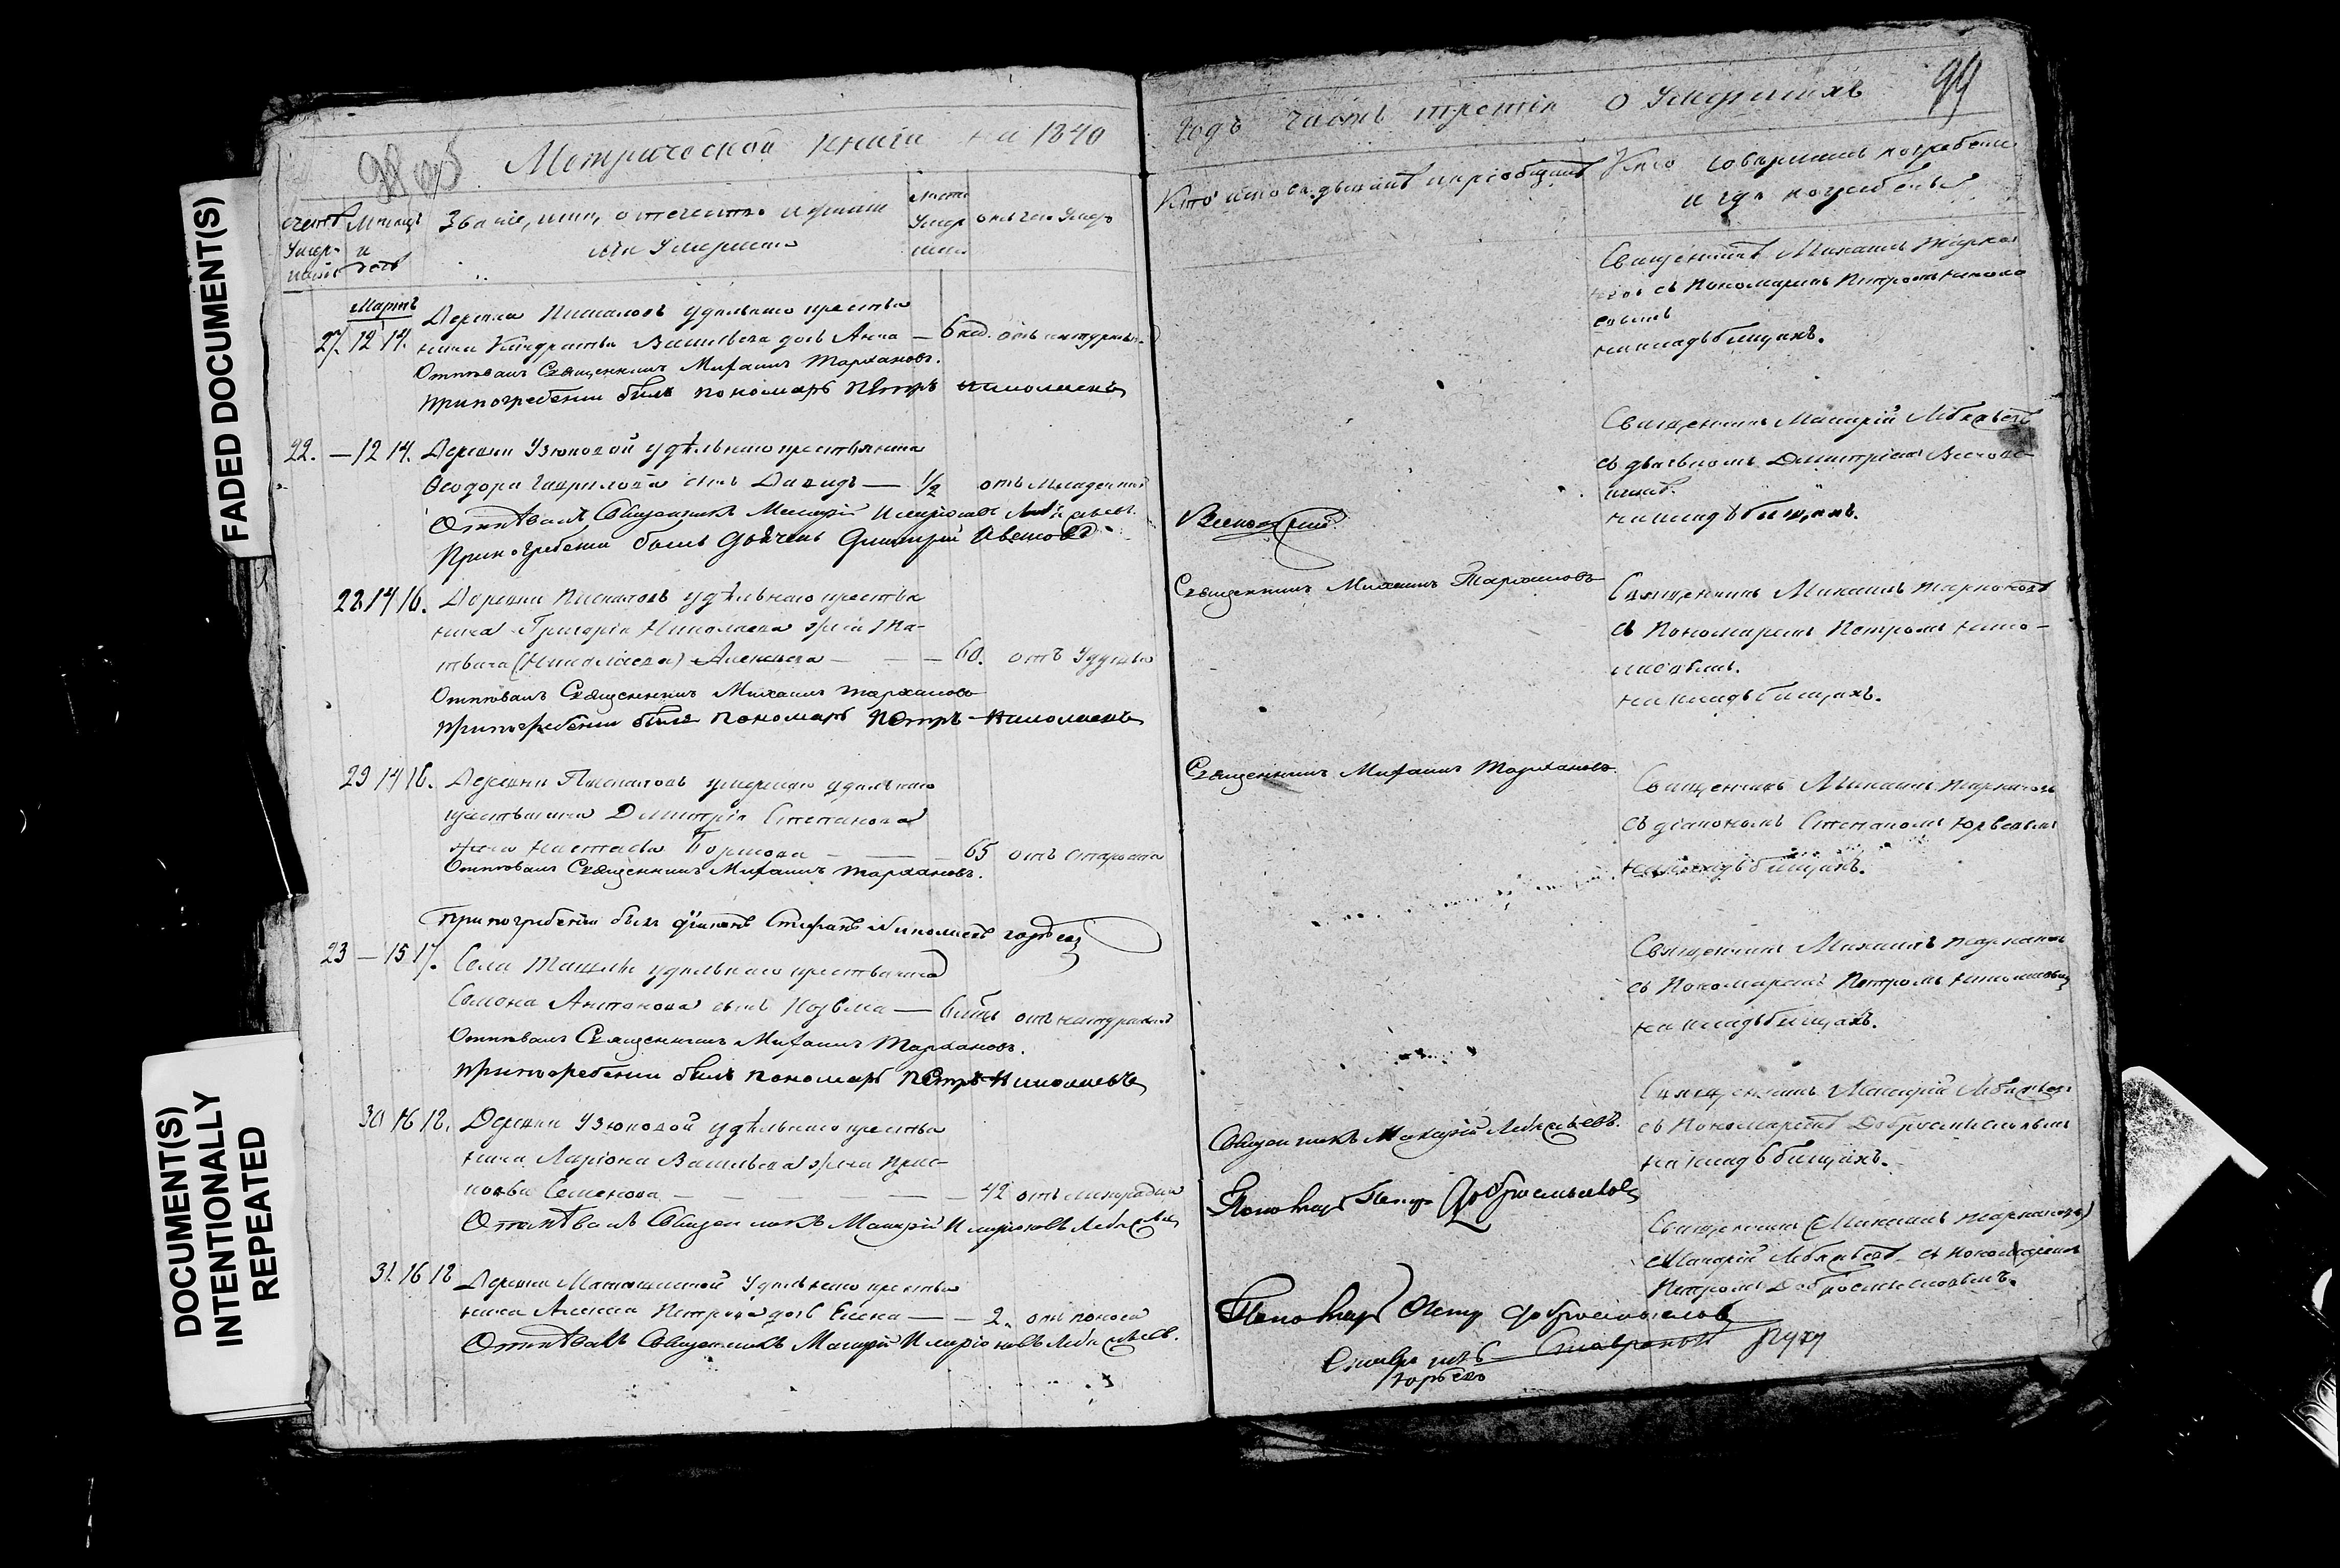 FADED DOCUMENT(S)
DOCUMENT(S)
INTENTIONALLY
REPEATED
Метрической книги на 1840
годъ часть третія о умершихъ
99
счетъ
умер-
шихъ
Мѣсяцъ
и
день
Званіе, имя, отечество и фамил
лія умершаго
лѣта
умер
шаго
отъ чего умеръ
Кто исповѣдывалъ и пріобщалъ
Кто совершалъ погребеніе
и гдѣ погребены
Мартъ
27. 12 14. Деревни Пискаловъ удѣльнаго крестья
нина Кондратья Васильева дочь Анна — 6 нед. отъ натуральн.
Отпѣвалъ Священникъ Михаилъ Тархановъ.
При погребеніи былъ пономарь Петръ Николаевъ
Священникъ Михаилъ Тархановъ
съ Пономаремъ Петромъ Никола
евымъ
на кладбищахъ.
22. — 12 14. Деревни Узюковой удѣльнаго крестьянина
Ѳеодора Гаврилова сынъ Давидъ — 1/2 отъ младенчес
Отпѣвалъ Священникъ Макарій Иларіоновъ Лебяжьевъ.
При погребеніи былъ дьячекъ Димитрій
Священникъ Макарій Лебяжьевъ
съ дьячкомъ Димитріемъ
на кладбищахъ.
28 14 16. Деревни Пискаловъ удѣльнаго крестья
нина Григорія Николаева жена Ма-
(Николаева) Алексѣева — — — 60. отъ удушья
Отпѣвалъ Священникъ Михаилъ Тархановъ
При погребеніи былъ пономарь Петръ Николаевъ
Священникъ Михаилъ Тархановъ
Священникъ Михаилъ Тархановъ
съ Пономаремъ Петромъ Нико-
лаевымъ.
на кладбищахъ.
29 14 16. Деревни Пискаловъ умершаго удѣльнаго
крестьянина Димитрія Степанова
жена Настасья — — — 65 отъ старости
Отпѣвалъ Священникъ Михаилъ Тархановъ.
При погребеніи былъ діаконъ Стефанъ Николаевъ Юрьевъ
Священникъ Михаилъ Тархановъ.
Священникъ Михаилъ Тархановъ
съ діакономъ Степаномъ Юрьевымъ
на кладбищахъ.
23 — 15 17. Села Ташлы удѣльнаго крестьянина
Семена Антонова сынъ Козьма — отъ натуральной
Отпѣвалъ Священникъ Михаилъ Тархановъ.
При погребеніи былъ пономарь Петръ Николаевъ
Священникъ Михаилъ Тархановъ
съ Пономаремъ Петромъ Николаевымъ
на кладбищахъ.
30 16 18. Деревни Узюковой удѣльнаго крестья
нина Ларіона Васильева жена Прас-
ковья Семенова — — — — 42 отъ лихорадки
Отпѣвалъ Священникъ Макарій Иларіоновъ Лебяжьевъ
Священникъ Макарій Лебяжьевъ.
Пономарь Петръ Добросмысловъ
Священникъ Макарій Лебяжьевъ
съ Пономаремъ Добросмысловымъ
на кладбищахъ.
31. 16 18 Деревни удѣльнаго крестья
нина Алексѣя Петрова дочь Елена — — 2. отъ поноса
Отпѣвалъ Священникъ Макарій Иларіоновъ Лебяжьевъ.
Пономарь Петръ Добросмысловъ
Священникъ (Михаилъ Тархановъ)
Макарій Лебяжьевъ съ пономаремъ
Петромъ Добросмысловымъ.
руку
Юрьевъ